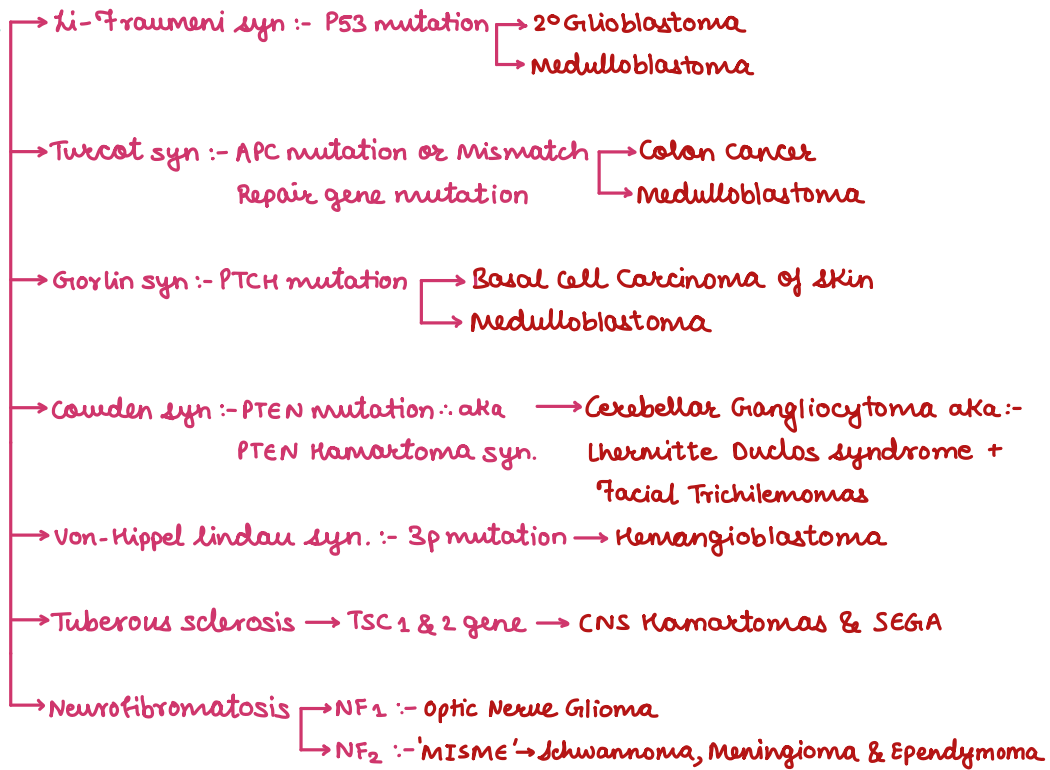 Li-Fraumeni syn :- P53 mutation → 2° Glioblastoma
→ Medulloblastoma
Turcot syn :- APC mutation or Mismatch → Colon cancer
Repair gene mutation → Medulloblastoma
Gorlin syn :- PTCH mutation → Basal Cell Carcinoma of Skin
→ Medulloblastoma
Cowden syn :- PTEN mutation ∴ aka → Cerebellar Gangliocytoma aka :-
PTEN Hamartoma syn. Lhermitte Duclos syndrome +
Facial Trichilemomas
Von-Hippel lindau syn. :- 3p mutation → Hemangioblastoma
Tuberous sclerosis → TSC 1 & 2 gene → CNS Hamartomas & SEGA
Neurofibromatosis → NF1 :- Optic Nerve Glioma
→ NF2 :- 'MISME' → Schwannoma, Meningioma & Ependymoma